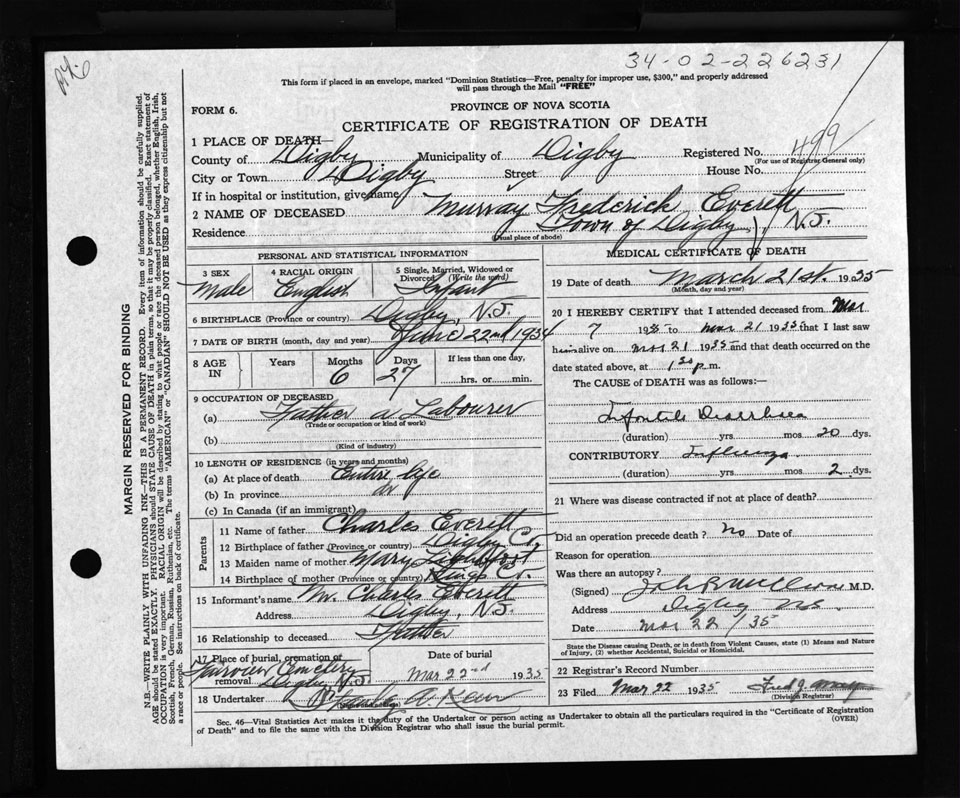 24.6
34-02-226231
This form if placed in an envelope, marked "Dominion Statistics—Free, penalty for improper use, $300," and properly addressed
will pass through the Mail "FREE"
FORM 6.
PROVINCE OF NOVA SCOTIA
CERTIFICATE OF REGISTRATION OF DEATH
1 PLACE OF DEATH—
County of Digby Municipality of Digby Registered No. 499
(For use of Registrar General only)
City or Town Digby Street House No.
If in hospital or institution, give name
2 NAME OF DECEASED Murray Frederick Everett
Residence Town of Digby, N.S.
(Usual place of abode)
PERSONAL AND STATISTICAL INFORMATION
3 SEX 4 RACIAL ORIGIN 5 Single, Married, Widowed or
Divorced (Write the word)
Male English Infant
6 BIRTHPLACE (Province or country) Digby, N.S.
7 DATE OF BIRTH (month, day and year) June 22nd 1934
8 AGE IN Years Months Days If less than one day,
6 27 hrs. or min.
9 OCCUPATION OF DECEASED
(a) Father a Labourer
(Trade or occupation or kind of work)
(b)
(Kind of industry)
10 LENGTH OF RESIDENCE (in years and months)
(a) At place of death Entire life
(b) In province do
(c) In Canada (if an immigrant)
Parents
11 Name of father Charles Everett
12 Birthplace of father (Province or country) Digby Co.
13 Maiden name of mother Mary
14 Birthplace of mother (Province or country) Kings Co.
15 Informant's name Mr. Charles Everett
Address Digby, N.S.
16 Relationship to deceased Father
17 Place of burial, cremation or removal Date of burial
Fairview Cemetery
Digby N.S. Mar 22nd 1935
18 Undertaker
MEDICAL CERTIFICATE OF DEATH
19 Date of death March 21st. 1935
(Month, day and year)
20 I HEREBY CERTIFY that I attended deceased from Mar
7 1935 to Mar 21 1935 that I last saw
him alive on Mar 21 1935 and that death occurred on the
date stated above, at 1 30 p.m.
The CAUSE of DEATH was as follows:—
Infantile Diarrhoea
(duration) yrs mos 20 dys.
CONTRIBUTORY Influenza
(duration) yrs. mos 2 dys.
21 Where was disease contracted if not at place of death?
Did an operation precede death? No Date of
Reason for operation
Was there an autopsy?
(Signed) M.D.
Address Digby NS.
Date Mar 22/35
State the Disease causing Death, or in death from Violent Causes, state (1) Means and Nature
of Injury, (2) whether Accidental, Suicidal or Homicidal.
22 Registrar's Record Number
23 Filed Mar 22 1935
(Division Registrar)
Sec. 46—Vital Statistics Act makes it the duty of the Undertaker or person acting as Undertaker to obtain all the particulars required in the "Certificate of Registration
of Death" and to file the same with the Division Registrar who shall issue the burial permit. (OVER)
MARGIN RESERVED FOR BINDING
N.B.—WRITE PLAINLY WITH UNFADING INK—THIS IS A PERMANENT RECORD. Every item of information should be carefully supplied.
AGE should be stated EXACTLY. PHYSICIANS should STATE CAUSE OF DEATH in plain terms, so that it may be properly classified. Exact statement of
OCCUPATION is very important. RACIAL ORIGIN will be described by stating to what people or race the deceased person belonged, whether English, Irish,
Scottish, French, German, Russian, Ruthenian, etc. The terms "AMERICAN" or "CANADIAN" SHOULD NOT BE USED as they express citizenship but not
a race or people. See instructions on back of certificate.